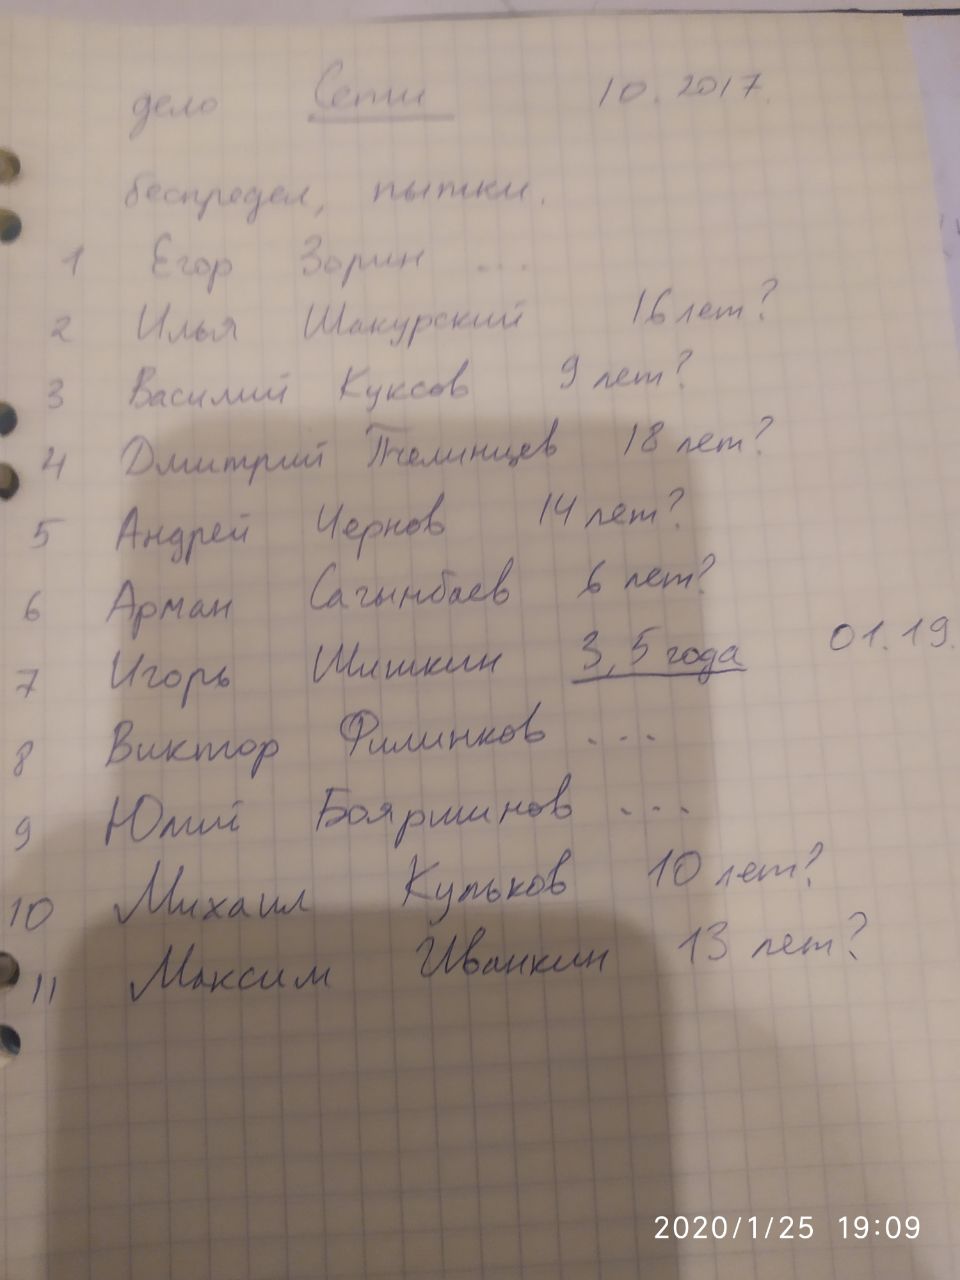 дело Сети 10.2017.
беспредел, пытки.
1 Егор Зорин ...
2 Илья Шакурский 16 лет?
3 Василий Куксов 9 лет?
4 Дмитрий Пчелинцев 18 лет?
5 Андрей Чернов 14 лет?
6 Арман Сагынбаев 6 лет?
7 Игорь Шишкин 3,5 года 01.19.
8 Виктор Филинков ...
9 Юлий Бояршинов ...
10 Михаил Кульков 10 лет?
11 Максим Иванкин 13 лет?
2020/1/25 19:09